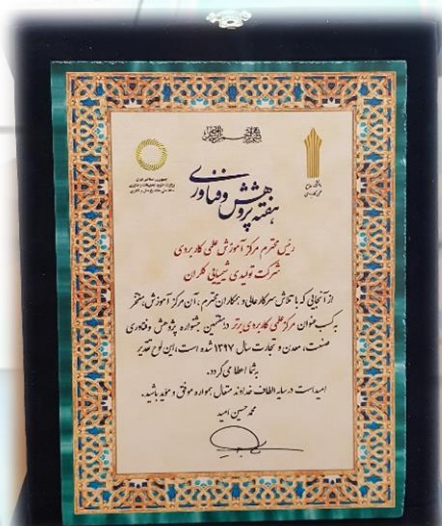 هفته پژوهش و فناوری
رئیس محترم مرکز آموزش علمی کاربردی
شرکت تولیدی شیمیایی کلران
از آنجایی که با تلاش سرکار عالی و همکاران محترم، آن مرکز آموزش، مفتخر
به کسب عنوان مرکز علمی کاربردی برتر در هفتمین جشنواره پژوهش و فناوری
صنعت، معدن و تجارت سال ۱۳۹۷ شده است، این لوح تقدیر
به شما اعطا می گردد.
امید است در سایه الطاف خداوند متعال همواره موفق و مؤید باشید.
محمد حسین امید